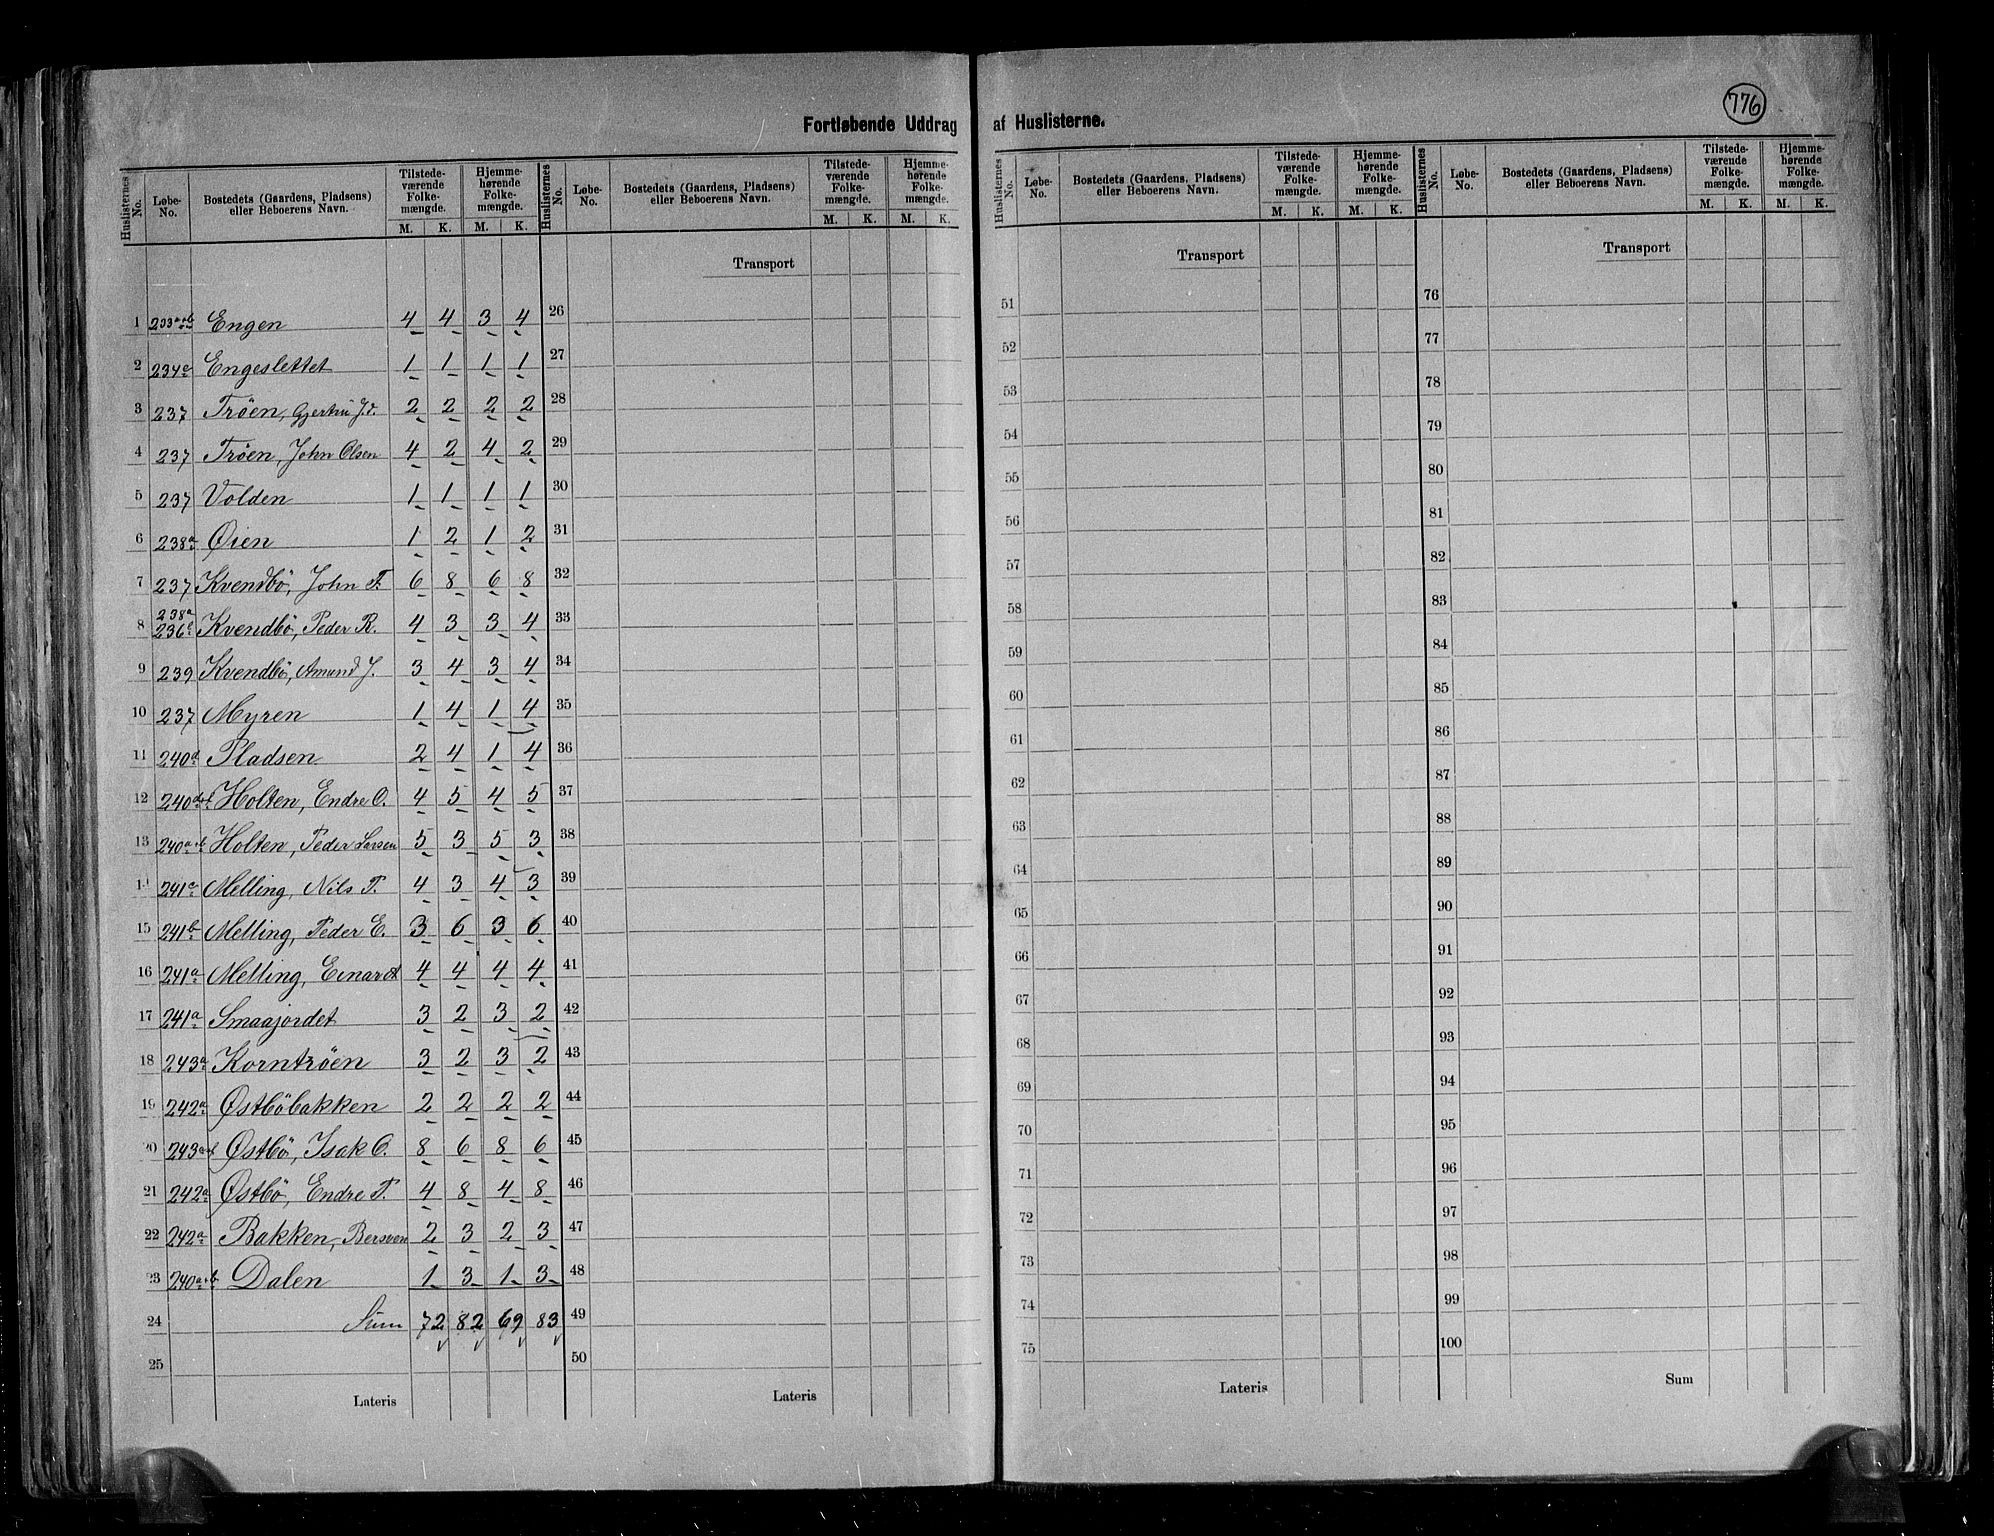 776
Fortløbende Uddrag af Huslisterne.
Huslisternes No. Løbe-No. Bostedets (Gaardens, Pladsens) eller Beboerens Navn. Tilstedeværende Folkemængde. M. K. Hjemmehørende Folkemængde. M. K.
Huslisternes No. Løbe-No. Bostedets (Gaardens, Pladsens) eller Beboerens Navn. Tilstedeværende Folkemængde. M. K. Hjemmehørende Folkemængde. M. K.
Huslisternes No. Løbe-No. Bostedets (Gaardens, Pladsens) eller Beboerens Navn. Tilstedeværende Folkemængde. M. K. Hjemmehørende Folkemængde. M. K.
Huslisternes No. Løbe-No. Bostedets (Gaardens, Pladsens) eller Beboerens Navn. Tilstedeværende Folkemængde. M. K. Hjemmehørende Folkemængde. M. K.
Transport Transport Transport
1 233a+b Engen 4 4 3 4 26 51 76
2 234a Engeslettet 1 1 1 1 27 52 77
3 237 Tröen, Gjertru J.d. 2 2 2 2 28 53 78
4 237 Tröen, John Olsen 4 2 4 2 29 54 79
5 237 Volden 1 1 1 1 30 55 80
6 238a Øien 1 2 1 2 31 56 81
7 237 Kvendbö, John T. 6 8 6 8 32 57 82
8 238a 236 Kvendbö, Peder R. 4 3 3 4 33 58 83
9 239 Kvendbö, Amund J. 3 4 3 4 34 59 84
10 237 Myren 1 4 1 4 35 60 85
11 240d Pladsen 2 4 1 4 36 61 86
12 240 Holten, Endre O. 4 5 4 5 37 62 87
13 240a+b Holten, Peder Larsen 5 3 5 3 38 63 88
14 241c Melling, Nils P. 4 3 4 3 39 64 89
15 241b Melling, Peder E. 3 6 3 6 40 65 90
16 241a Melling, Einar A 4 4 4 4 41 66 91
17 241a Smaajordet 3 2 3 2 42 67 92
18 243a Korntröen 3 2 3 2 43 68 93
19 242a Østböbakken 2 2 2 2 44 69 94
20 243a Østbö, Isak O. 8 6 8 6 45 70 95
21 242a Østbö, Endre P. 4 8 4 8 46 71 96
22 242a Bakken, Bersven 2 3 2 3 47 72 97
23 240a+b Dalen 1 3 1 3 48 73 98
24 Sum 72 82 69 83 49 74 99
25 50 75 100
Lateris Lateris Lateris Sum